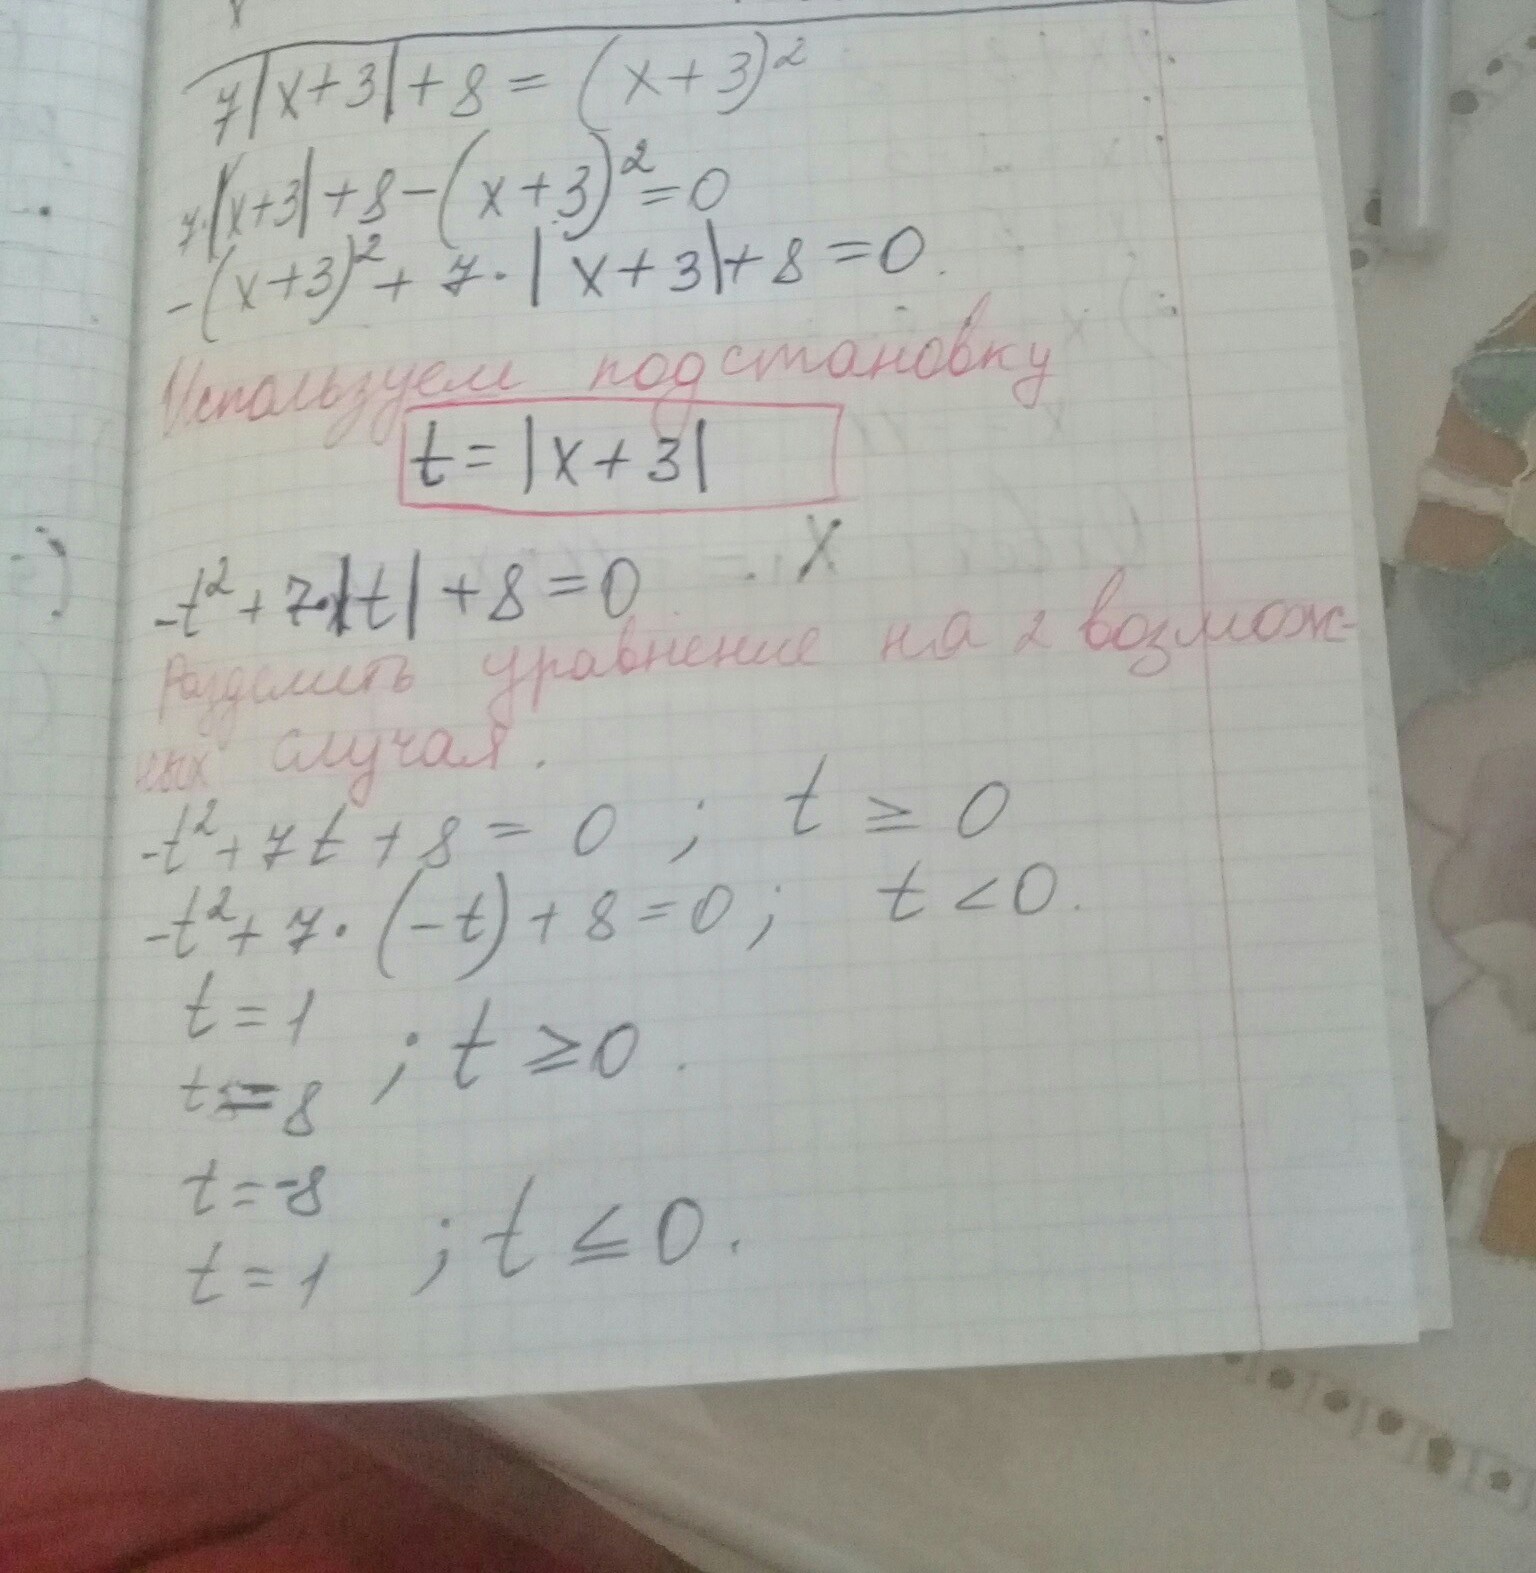 7|x+3|+8=(x+3)²
7·|x+3|+8-(x+3)²=0
-(x+3)²+7·|x+3|+8=0.
Используем подстановку
t=|x+3|
x
-t²+7·|t|+8=0
Разделить уравнение на 2 возмож-
ных случая.
-t²+7t+8=0; t≥0
-t²+7·(-t)+8=0; t<0.
t=1
; t≥0.
t=8
t=-8
; t≤0.
t=1